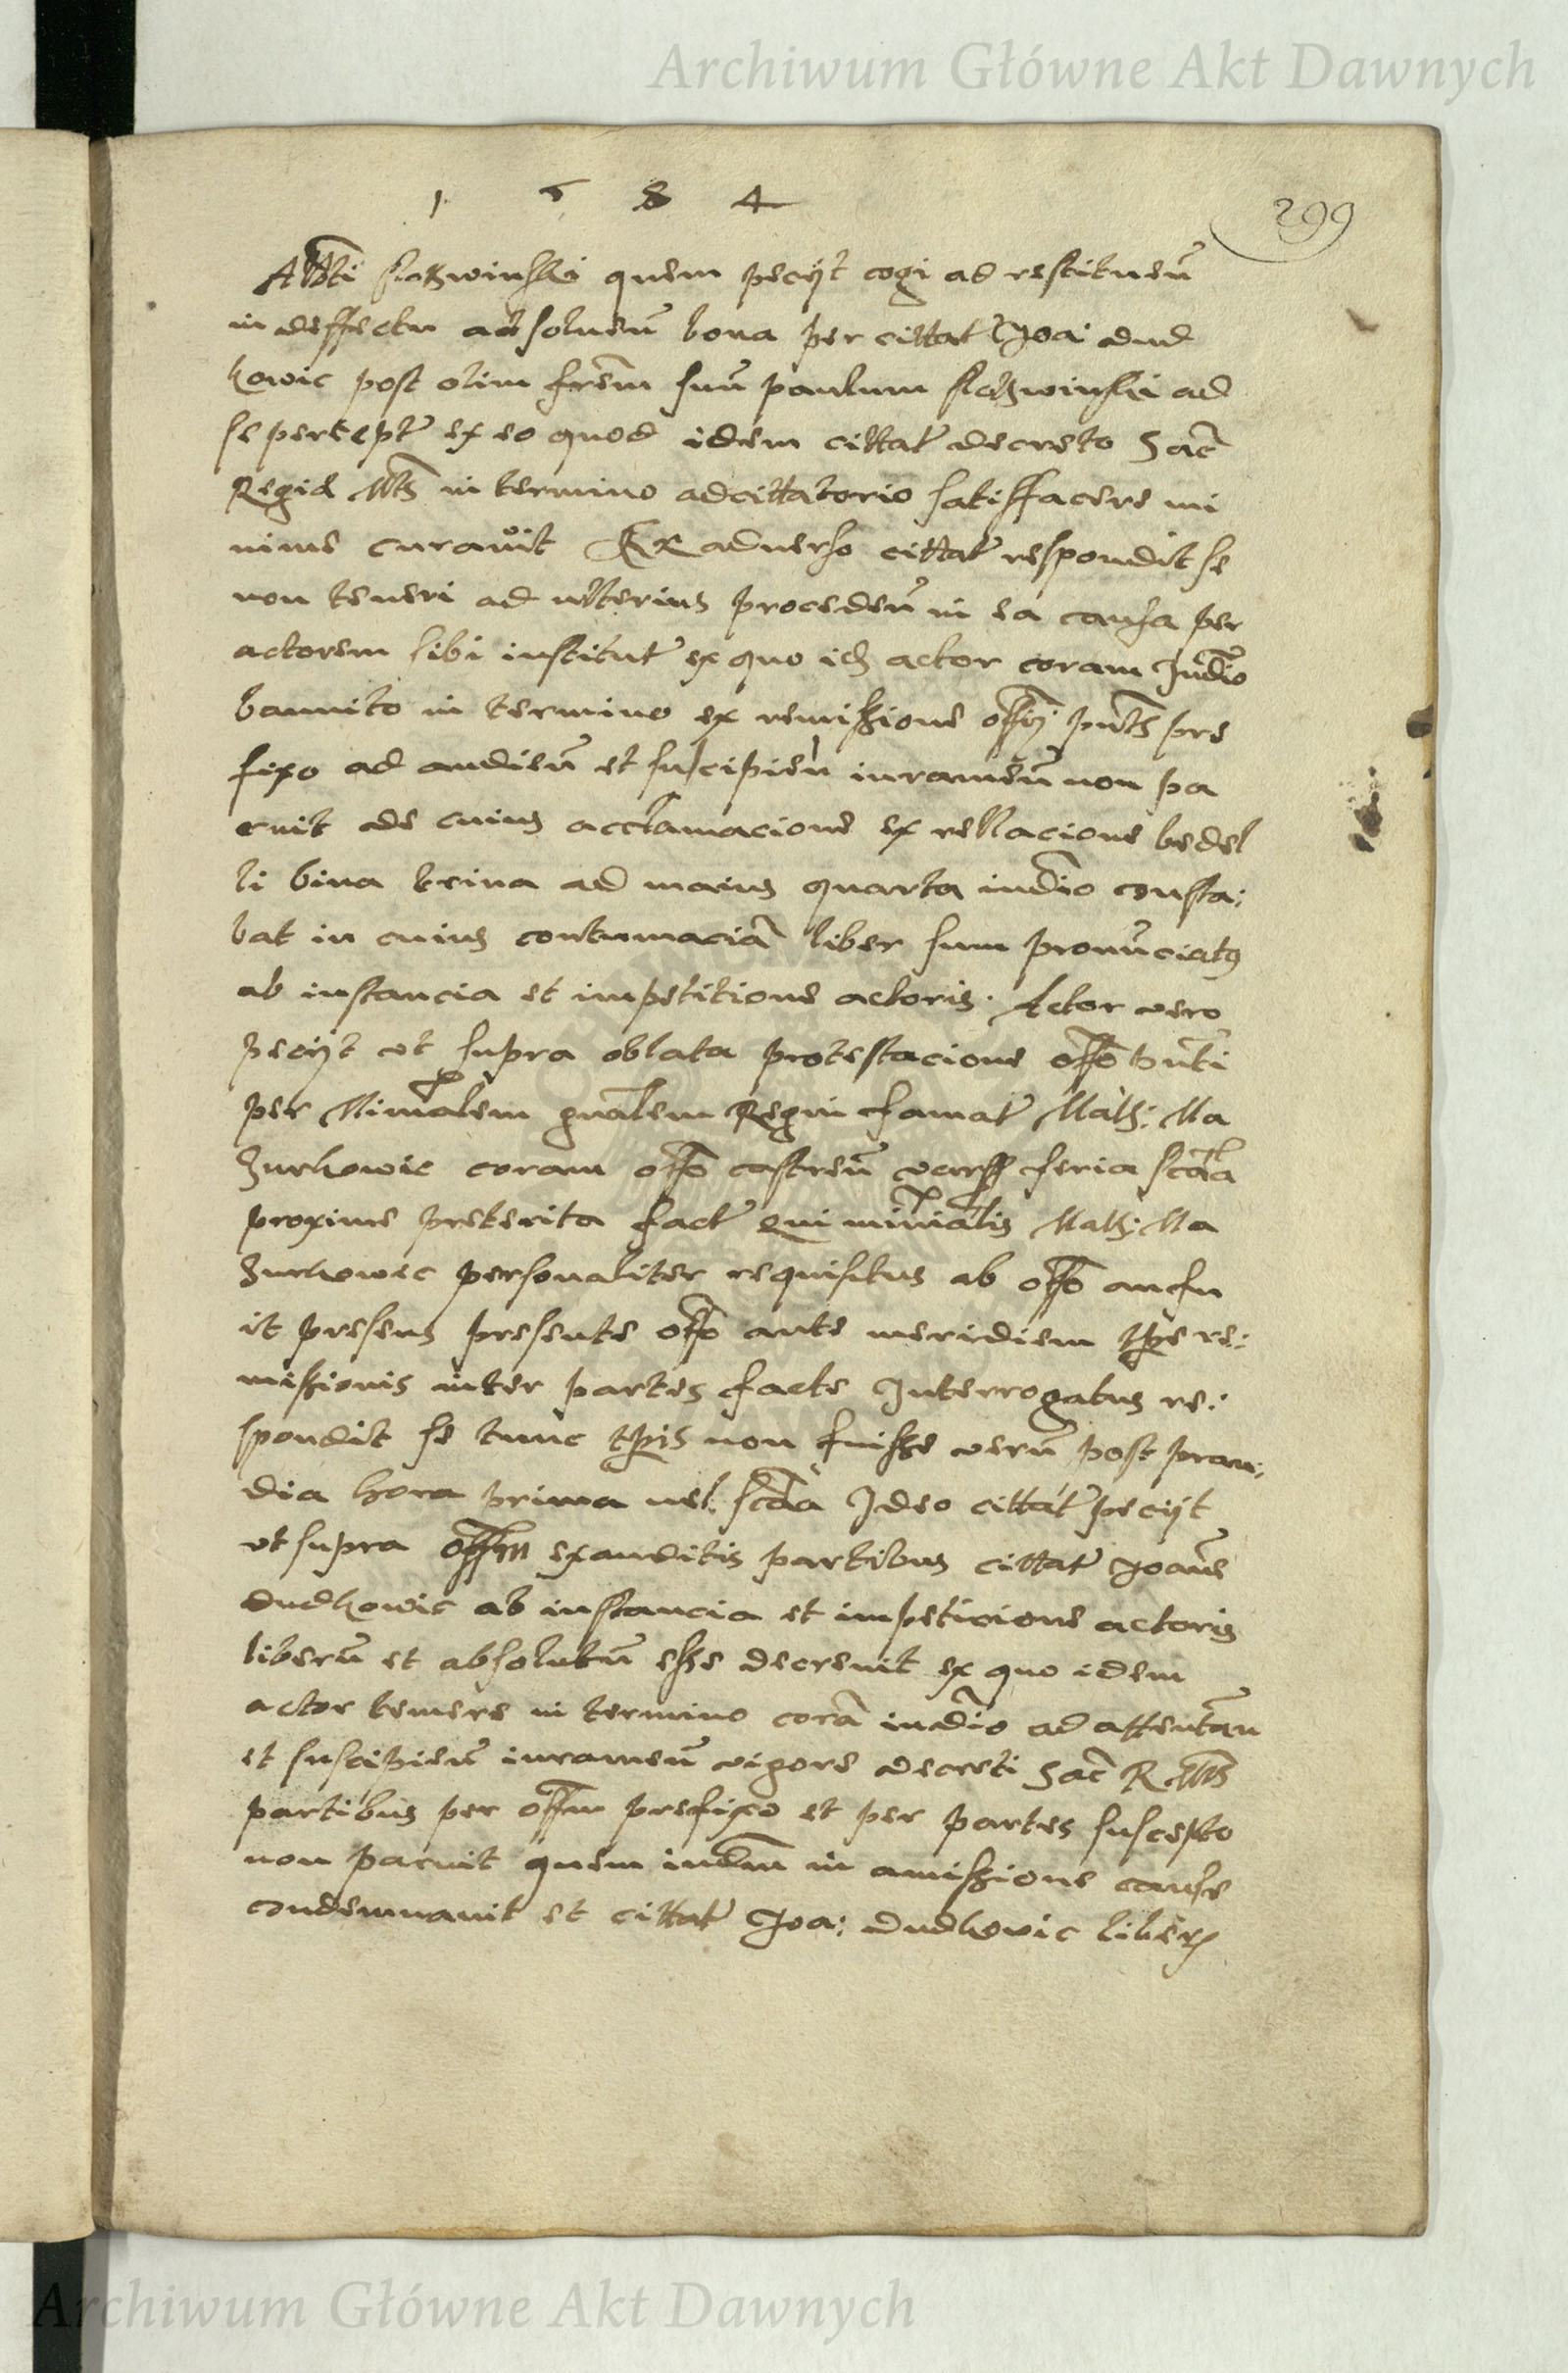 Archiwum Główne Akt Dawnych
1 5 8 4
299
quem peciÿt cogi ad restitueñ
in deffectu absolueñ bona per cittat Joa: Dud
kowic post olim frem suũ paulum ad
se percept ex eo quod idem cittat decreto Sac
Regiæ Mtis in termino adcittatorio satisfacere mi
nime curavit Ex adverso cittat respondit se
non teneri ad ulterius procedeñ in ea causa per
actorem sibi institut ex quo id actor coram Judio
bannito in termino ex remissione offÿ pntis pre
fixo ad audieñ et suscipieñ iurameñ non pa
ruit de cuius acclamacione ex rellacione bedel
li bina trina ad maius quarta iudio consta:
bat in cuius contumaciã liber sum pronũciatus
ab instancia et impetitione actoris. Actor vero
peciÿt ut supra oblata protestacione offo pnti
per Minralem gnalem Regni famat Math: Ma
zurkowic coram offo castreñ vars feria scda
proxime preterita fact Qui minralis Math: Ma
zurkowic personaliter requisitus ab offo an fu
it presens presente offo ante meridiem tpe re:
missionis inter partes facte Interrogatus re:
spondit se tunc tpis non fuisse verũ post pran:
dia hora prima vel scda Ideo cittat peciÿt
ut supra offm exauditis partibus cittat Joane
Dudkowic ab instancia et impeticione actoris
liberũ et absolutũ esse decrevit ex quo idem
actor temere in termino corã iudio ad attentañ
et suscipieñ iurameñ vigore decreti Sac R Mtis
partibus per offm prefixo et per partes suscepto
non paruit quem iudm in amissione cause
condemnavit et cittat Joa: Dudkovic liberũ
Archiwum Główne Akt Dawnych